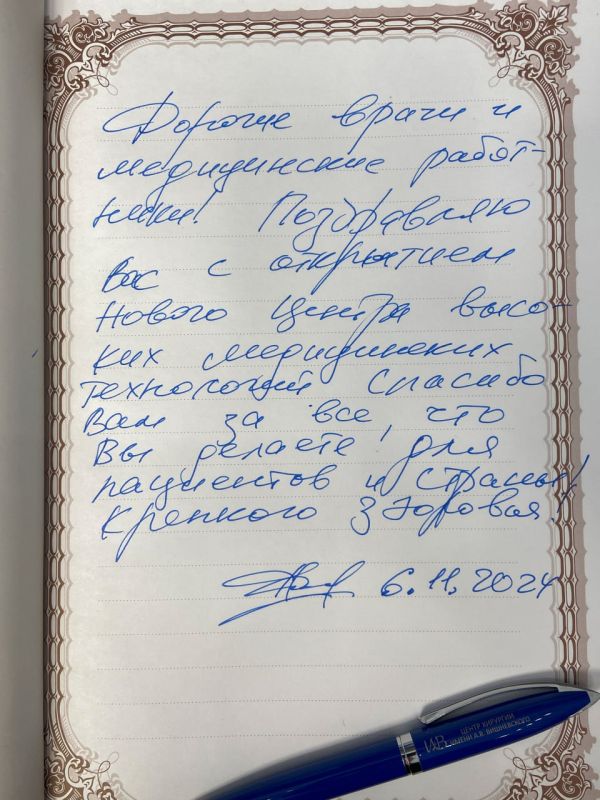 Дорогие врачи и
медицинские работ-
ники! Поздравляю
Вас с открытием
Нового Центра высо-
ких медицинских
технологий Спасибо
Вам за все, что
Вы делаете для
пациентов и страны!
Крепкого здоровья!
6.11.2024
ЦЕНТР ХИРУРГИИ
ИМЕНИ А.В. ВИШНЕВСКОГО